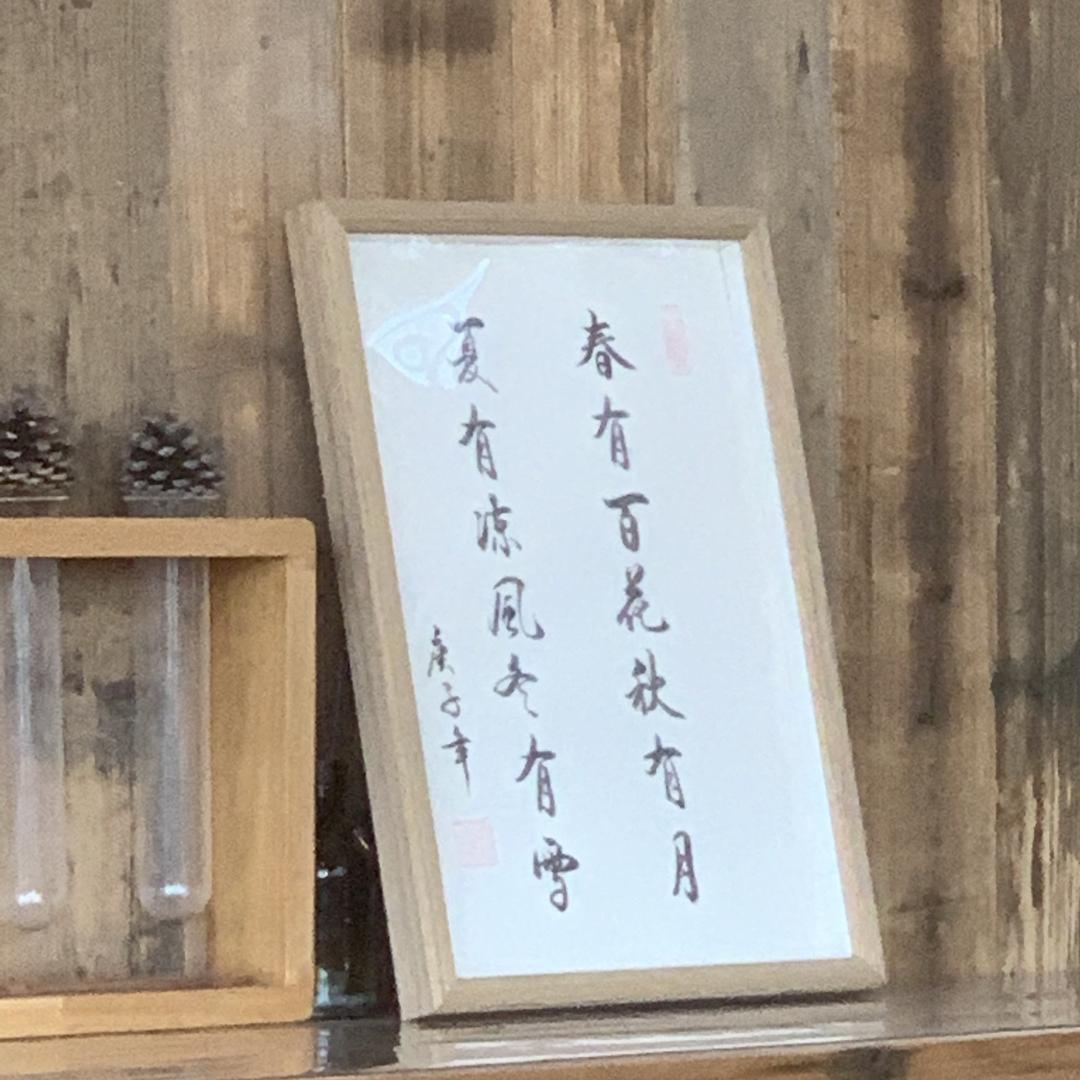 春有百花秋有月
夏有凉風冬有雪
庚子年